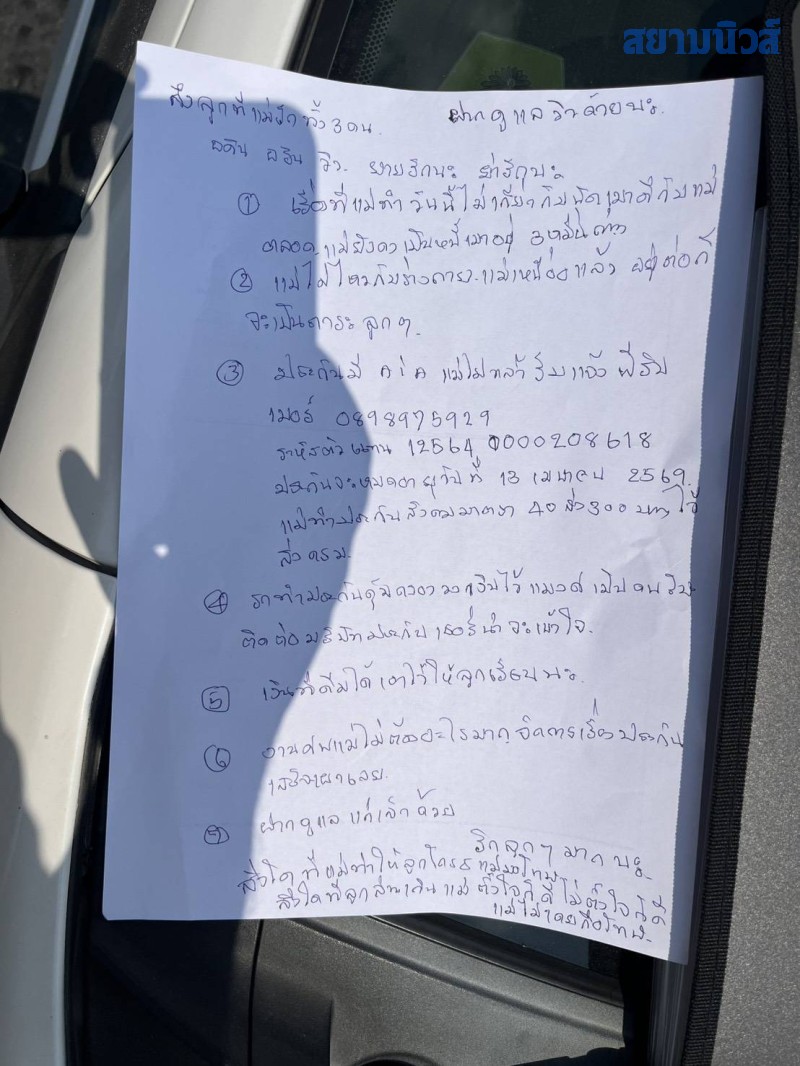 สยามนิวส์
ถึงลูกที่แม่รักทั้ง 3 คน. ฝากดูแล วิวด้วยนะ.
วิว. ยายรักนะ
① เรื่องที่แม่ทำวันนี้ไม่เกี่ยวกับ ดีกับแม่
ตลอด แม่ยังคงเป็นหนี้เขาอยู่ 3 หมื่นกว่า
② แม่ไม่ไหวกับร่างกาย. แม่เหนื่อยแล้ว อยู่ต่อก็
จะเป็นภาระ ลูกๆ.
③ ประกันมี AIA แม่ไม่ แล้ว รีบแจ้ง
เบอร์ 0898975929
รหัสตัวแทน 12564 0000208618
ประกันจะหมดอายุวันที่ 13 เมษายน 2569.
แม่ทำประกันสังคมมาตรา 40 ส่ง 300 บาท ไว้
④ รถทำประกันคุ้มครองวงเงินไว้
ติดต่อ บริษัท ประกัน จะเข้าใจ.
⑤ เงินที่ ได้ เอาไว้ให้ลูกเรียนนะ.
⑥ งานศพแม่ไม่ต้องอะไรมาก จัดการเรื่องประกัน
เสร็จเผาเลย.
⑦ ฝากดูแล ด้วย
รักลูกๆ มาก นะ.
สิ่งใดที่แม่ทำให้ลูกโกรธ
สิ่งใดที่ลูก แม่ ตั้งใจก็ดี ไม่ตั้งใจก็ดี
แม่ไม่เคยถือโทษ.